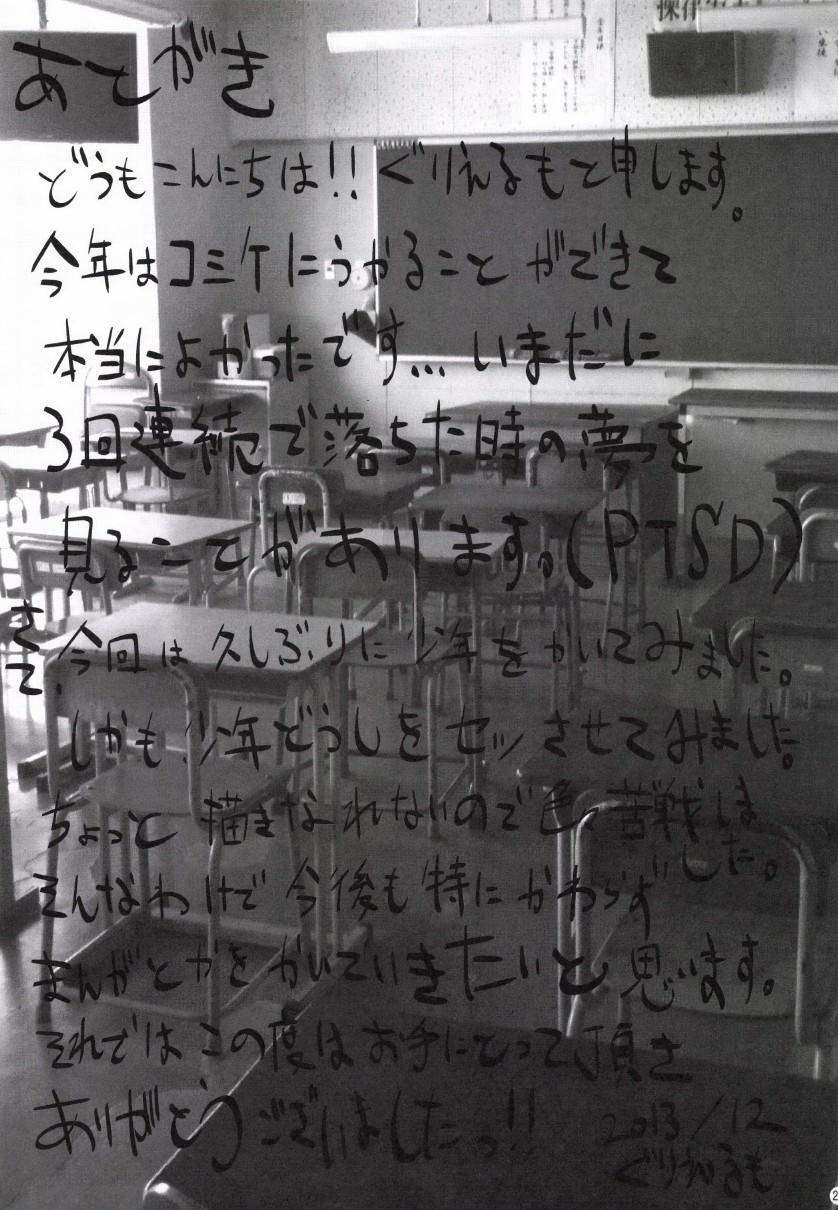 あとがき
どうもこんにちは!! ぐりえるもと申します。
今年はコミケにうかることができて
本当によかったです... いまだに
3回連続で落ちた時の夢を
見ることがあります。(PTSD)
さて、今回は久しぶりに少年をかいてみました。
しかも少年どうしをセッさせてみました。
ちょっと描きなれないので色々苦戦しました。
そんなわけで今後も特にかわらず
まんがとかをかいていきたいと思います。
それではこの度はお手にとって頂き
ありがとうございましたっ!!
2013/12
ぐりえるも
2